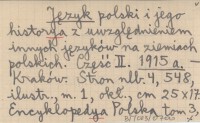 Język polski i jego
historya z uwzględnieniem
innych języków na ziemiach
polskich. Część II. 1915 a.
Kraków. Stron nlb. 4, 548,
ilustr., m. 1 okł., cm 25x17
Encyklopedya Polska tom 3,